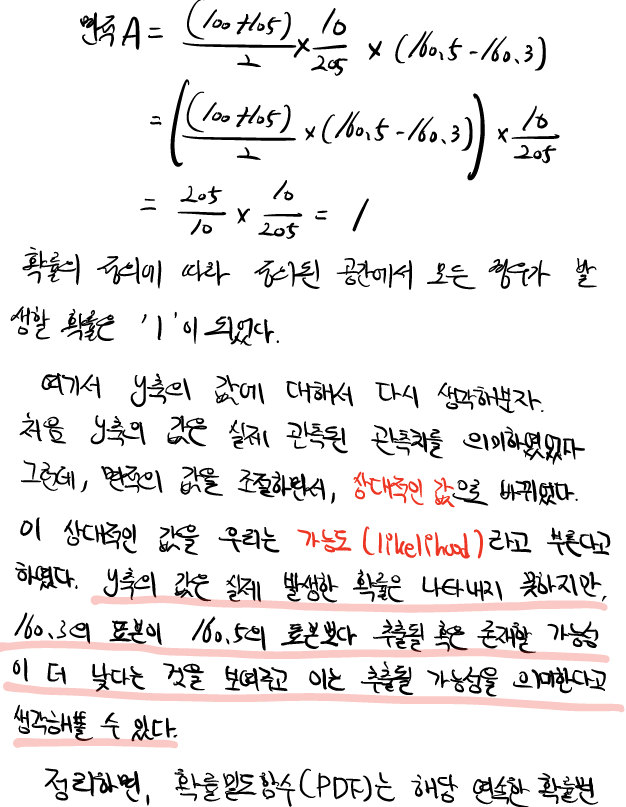 면적 A = (100+105)/2 × 10/205 × (160.5-160.3)
= ((100+105)/2 × (160.5-160.3)) × 10/205
= 205/10 × 10/205 = 1
확률의 정의에 따라 정의된 공간에서 모든 경우가 발
생할 확률은 '1'이 되었다.
여기서 y축의 값에 대해서 다시 생각해보자.
처음 y축의 값은 실제 관측된 관측치를 의미하였었다
그런데, 면적의 값을 조절하면서, 상대적인 값으로 바뀌었다.
이 상대적인 값을 우리는 가능도(likelihood)라고 부른다고
하였다. y축의 값은 실제 발생한 확률은 나타내지 못하지만,
160.3의 표본이 160.5의 표본보다 추출될 혹은 존재할 가능성
이 더 낮다는 것을 보여주고 이는 추출될 가능성을 의미한다고
생각해볼 수 있다.
정리하면, 확률밀도함수(PDF)는 해당 연속한 확률변